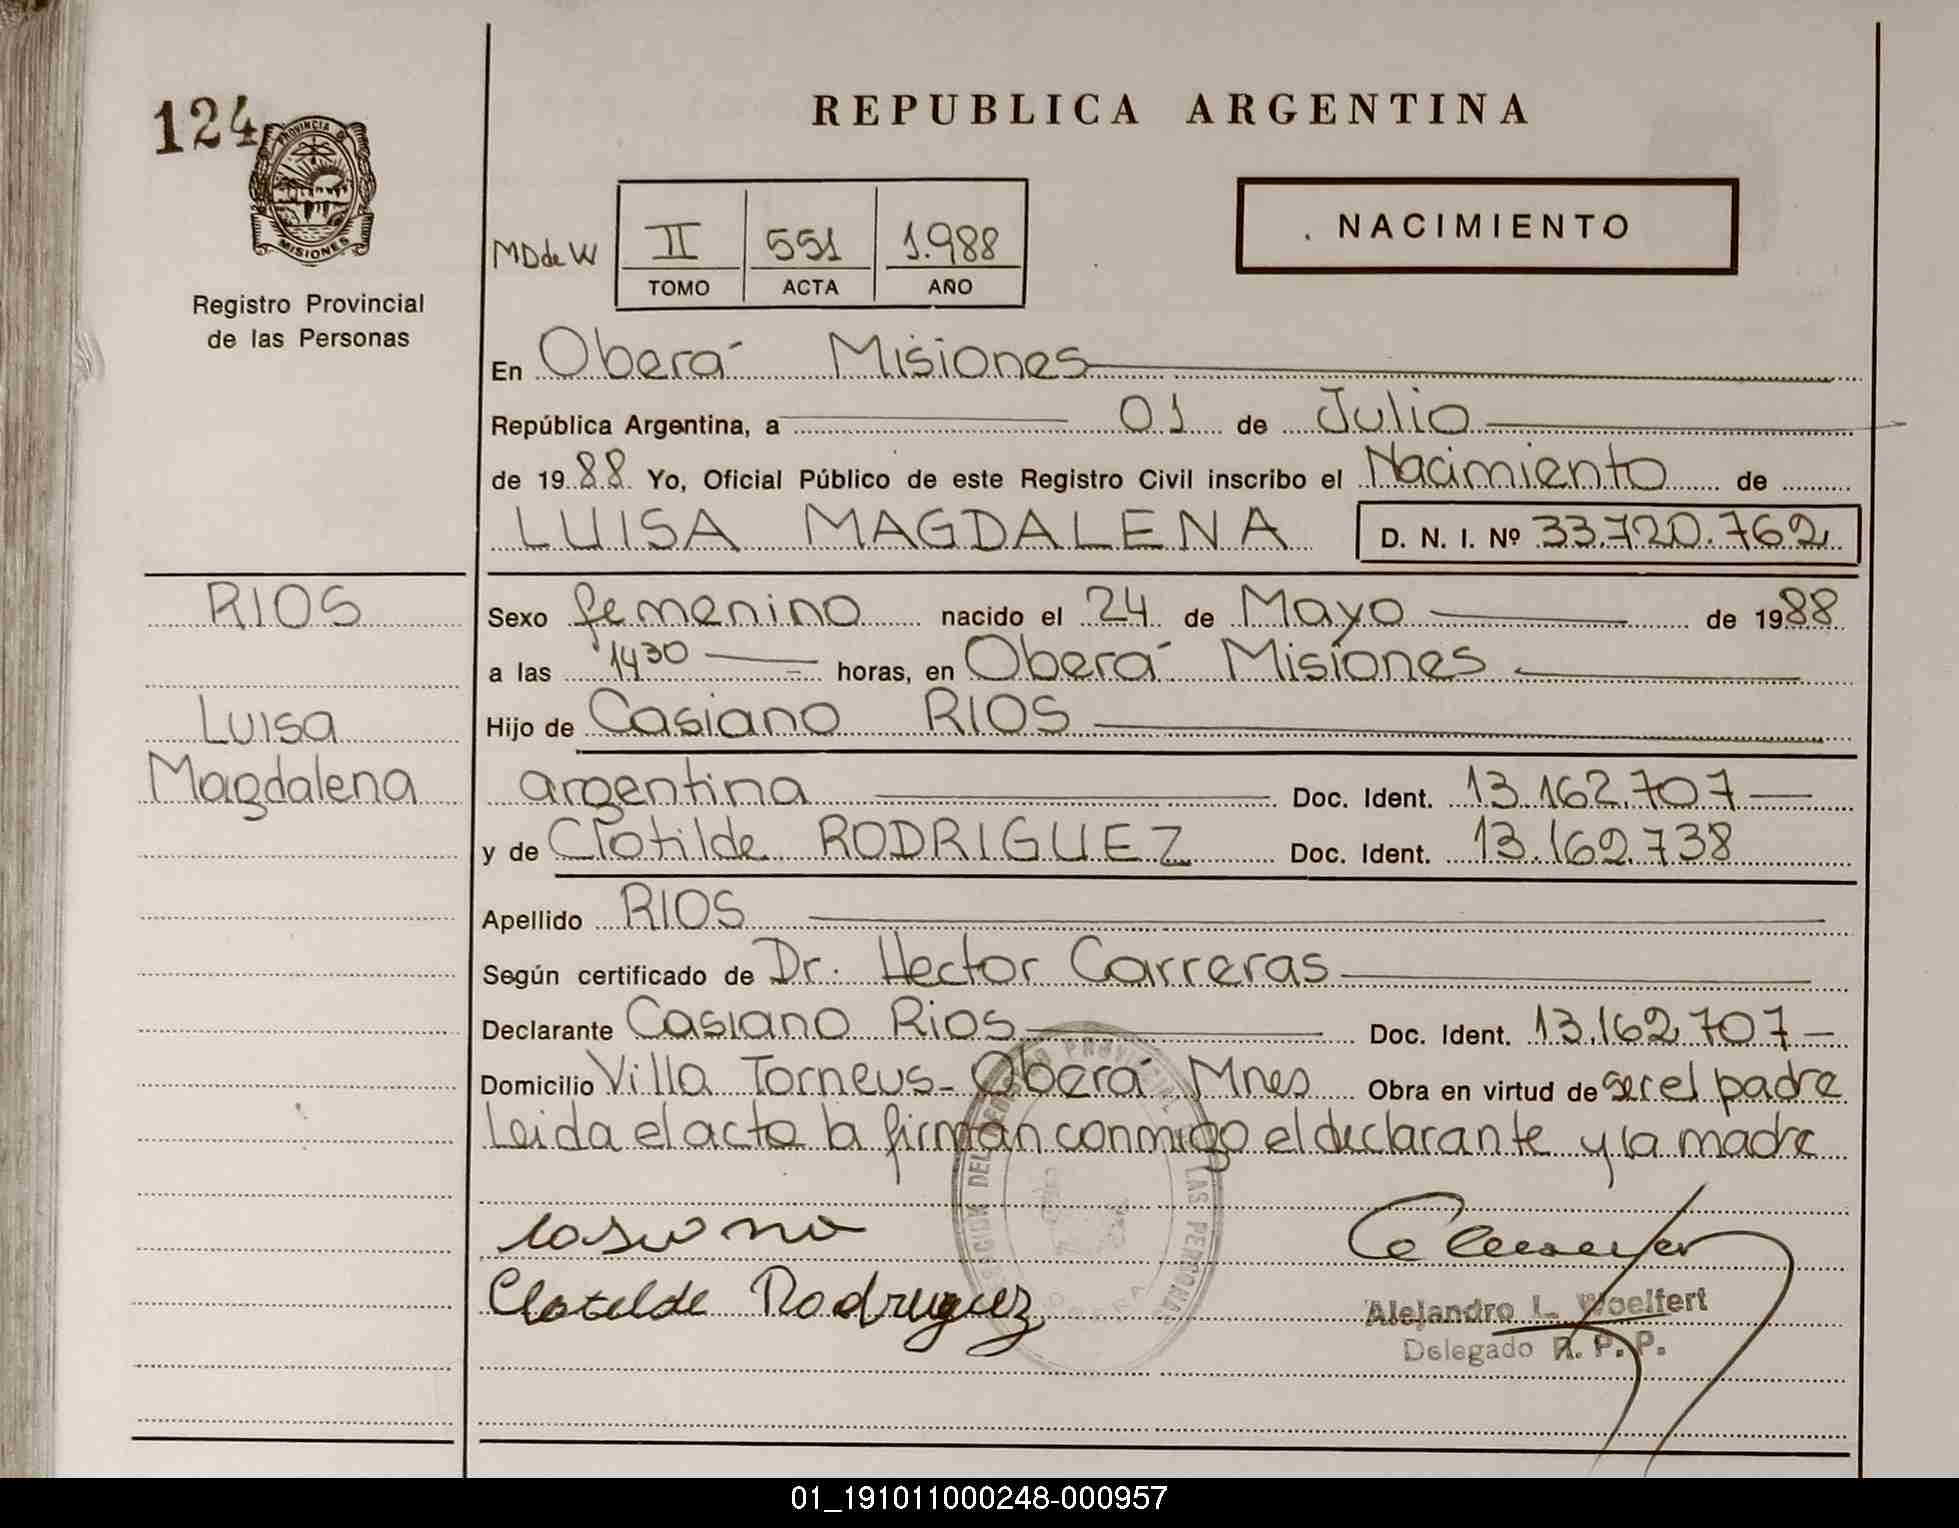 124
PROVINCIA DE
MISIONES
Registro Provincial
de las Personas
REPUBLICA ARGENTINA
NACIMIENTO
MD de W
II 551 1.988
TOMO ACTA AÑO
En Oberá Misiones
República Argentina, a 01 de Julio
de 1988 Yo, Oficial Público de este Registro Civil inscribo el Nacimiento de
LUISA MAGDALENA D. N. I. Nº 33.720.762
RIOS
Luisa
Magdalena
Sexo femenino nacido el 24 de Mayo de 1988
a las 1430 horas, en Oberá Misiones
Hijo de Casiano RIOS
argentina Doc. Ident. 13.162.707
y de Clotilde RODRIGUEZ Doc. Ident. 13.162.738
Apellido RIOS
Según certificado de Dr. Hector Carreras
Declarante Casiano Rios Doc. Ident. 13.162.707
Domicilio Villa Torneus - Oberá Mnes Obra en virtud de ser el padre
Leida el acta la firman conmigo el declarante y la madre
Clotilde Rodriguez
DEL REGISTRO PROVINCIAL LAS PERSONAS
OBERA
Alejandro L. Woelfert
Delegado R. P. P.
01_191011000248-000957